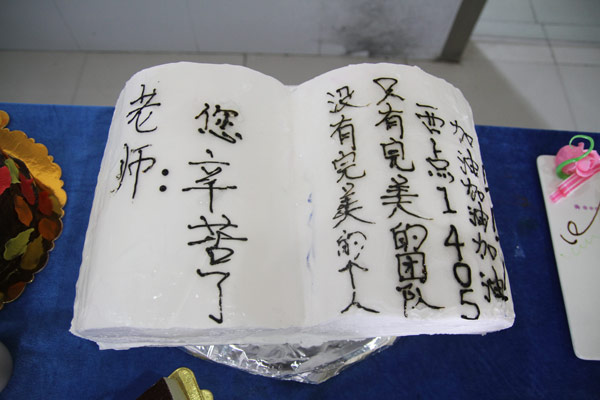 老师：
您辛苦了
没有完美的个人
只有完美的团队
西点1405
加油加油加油